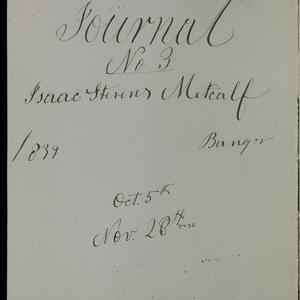 Journal
No. 3
Isaac Stevens Metcalf
1839 Bangor
Oct. 5th
Nov. 28th